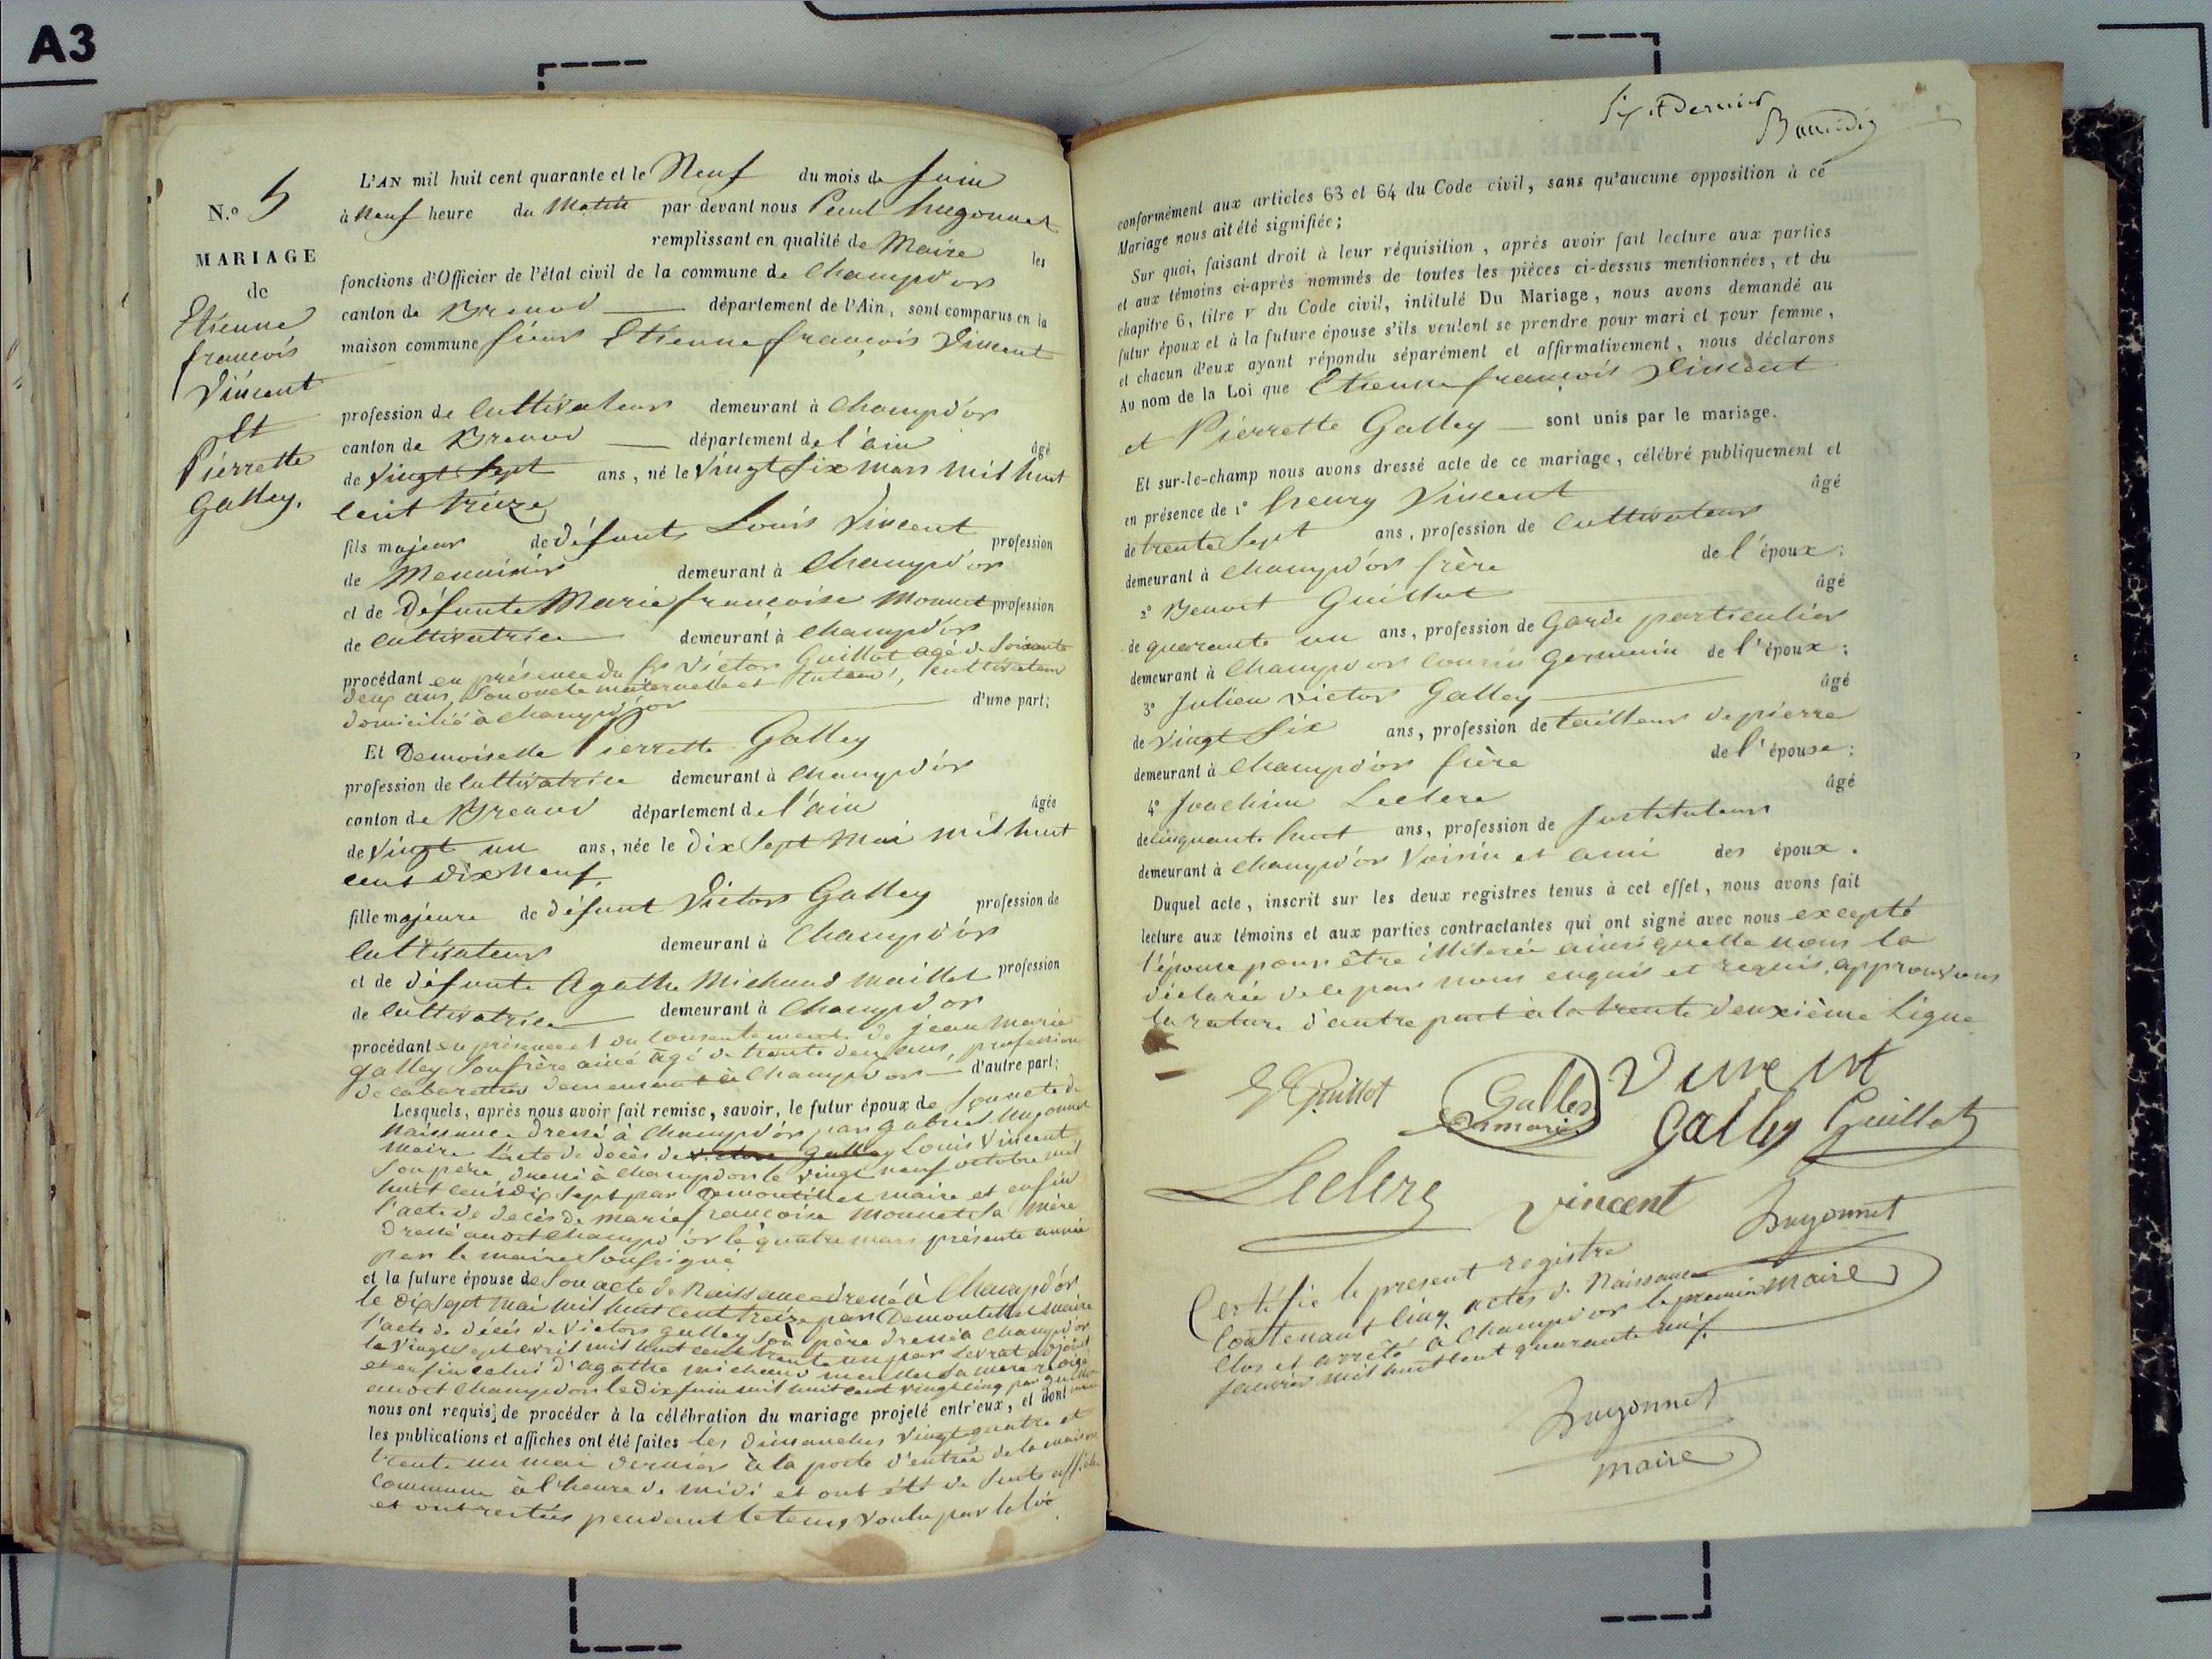 A3
N.° 5
MARIAGE
de
Etienne
françois
Vincent
Et
Pierrette
Galley.
L'AN mil huit cent quarante et le Neuf du mois de Juin
à Neuf heure du Matin par-devant nous Paul hugonnet
remplissant en qualité de Maire les
fonctions d'Officier de l'état civil de la commune de Champd'or
canton de Brenod département de l'Ain, sont comparus en la
maison commune sieur Etienne françois Vincent
profession de Cultivateur demeurant à Champd'or
canton de Brenod département de l'ain âgé
de Vingt Sept ans, né le Vingt Six mars mil huit
Cent treize
fils majeur de défunt Louis Vincent profession
de Menuisier demeurant à Champd'or
et de défunte Marie françoise Monnet profession
de Cultivatrice demeurant à Champd'or
procédant en présence du Sr Victor Guillot agé de Soixante
deux ans, Son oncle maternelle et tuteur, Cultivateur
domicilié à Champd'or d'une part;
Et Demoiselle Pierrette Galley
profession de Cultivatrice demeurant à Champd'or
canton de Brenod département de l'ain âgée
de Vingt un ans, née le Dix Sept Mai mil huit
cent dix Neuf
fille majeure de défunt Victor Galley profession de
Cultivateur demeurant à Champd'or
et de défunte Agathe Michaud Maillet profession
de Cultivatrice demeurant à Champd'or
procédant en présence et du consentement de jean marie
galley Son frère ainé âgé de trente deux ans, profession
de cabaretier demeurant à Champd'or d'autre part;
Lesquels, après nous avoir fait remise, savoir, le futur époux de Son acte de
Naissance dressé à Champd'or par gabriel hugonnet
maire l'acte de décès de victor galley Louis Vincent
Son père, dressé à Champdor le vingt neuf octobre mil
huit cent dix Sept par Demontillet maire et enfin
l'acte de décès de marie françoise Monnet Sa mère
dressé audit Champd'or le quatre mars présente année
par le maire Soussigné
et la future épouse de Son acte de Naissance dressé à Champd'or
le dix Sept Mai mil huit cent treize par Demontillet maire
l'acte de décés de Victor galley Son père dressé à Champd'or
le Vingt Sept avril mil huit cent trente un par Levrat adjoint
et enfin celui d'agathe michaud maillet Sa mère rédigé
audit Champdor le Dix Juin mil huit cent vingt cinq par
nous ont requis de procéder à la célébration du mariage projeté entr'eux, et dont
les publications et affiches ont été faites les Dimanches Vingt quatre et
trente un mai dernier à la porte d'entrée de la maison
Commune à l'heure de midi et ont été de Suite affichées
et ont restées pendant le tems voulu par la loi
Sixt Dernier
conformément aux articles 63 et 64 du Code civil, sans qu'aucune opposition à cé
Mariage nous ait été signifiée;
Sur quoi, faisant droit à leur réquisition, après avoir fait lecture aux parties
et aux témoins ci-après nommés de toutes les pièces ci-dessus mentionnées, et du
chapitre 6, titre v du Code civil, intitulé Du Mariage, nous avons demandé au
futur époux et à la future épouse s'ils veulent se prendre pour mari et pour femme,
et chacun d'eux ayant répondu séparément et affirmativement, nous déclarons
Au nom de la Loi que Etienne françois Vincent
et Pierrette Galley sont unis par le mariage.
Et sur-le-champ nous avons dressé acte de ce mariage, célébré publiquement et
en présence de 1° henry Vincent âgé
de trente Sept ans, profession de Cultivateur
demeurant à Champd'or frère de l'époux;
2° Benoit Guillot âgé
de quarante un ans, profession de Garde particulier
demeurant à Champd'or Cousin Germain de l'époux;
3° Julien Victor Galley âgé
de Vingt Six ans, profession de tailleur de pierre
demeurant à Champd'or frère de l'épouse;
4° Joachim Leclerc âgé
de Cinquante huit ans, profession de Instituteur
demeurant à Champd'or Voisin et ami des époux.
Duquel acte, inscrit sur les deux registres tenus à cet effet, nous avons fait
lecture aux témoins et aux parties contractantes qui ont signé avec nous excepté
l'épouse pour être illiterée ainsi quelle nous la
déclarée de le par nous enquis et requis, approuvons
la rature d'autre part à la trente deuxième Ligne
Guillot Galley Vincent
jnmarie Galley Guillot
Leclerc Vincent hugonnet
maire
Certifié le present registre
Contenant Cinq actes de Naissance
Clos et arrêté à Champd'or le premier
Janvier mil huit cent quarante un.
hugonnet
maire